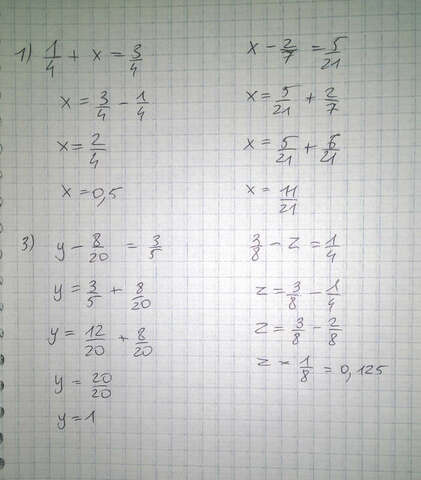 1) 1/4 + x = 3/4
x = 3/4 - 1/4
x = 2/4
x = 0,5
x - 2/7 = 5/21
x = 5/21 + 2/7
x = 5/21 + 6/21
x = 11/21
3) y - 8/20 = 3/5
y = 3/5 + 8/20
y = 12/20 + 8/20
y = 20/20
y = 1
3/8 - z = 1/4
z = 3/8 - 1/4
z = 3/8 - 2/8
z - 1/8 = 0,125